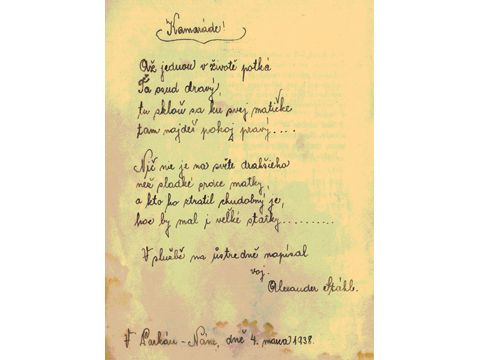 Kamaráde!
Až jednou v životě potká
Ťa osud dravý,
tu skloň sa ku svej matičke
tam najdeš pokoj pravý....
Nič nie je na světe drahšieho
než sladké srdce matky,
a kto ho stratil chudobný je,
hoc by mal i velké statky..........
V službě na ústredně napísal
voj.
Alexander Stáhl.
V Parkán - Náne, dně 4. marca 1938.